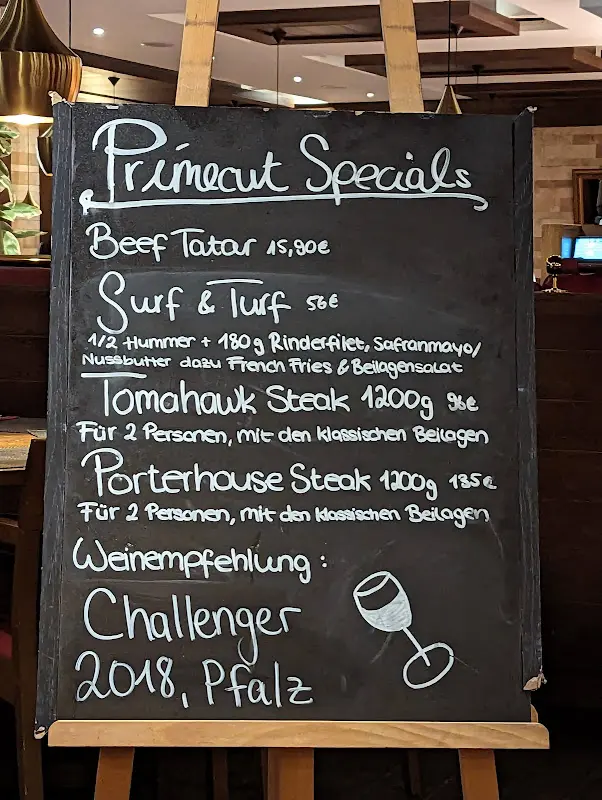 Primecut Specials
Beef Tatar 15,90€
Surf & Turf 56€
1/2 Hummer + 180g Rinderfilet, Safranmayo/
Nussbutter dazu French Fries & Beilagensalat
Tomahawk Steak 1200g 96€
Für 2 Personen, mit den klassischen Beilagen
Porterhouse Steak 1200g 135€
Für 2 Personen, mit den klassischen Beilagen
Weinempfehlung:
Challenger
2018, Pfalz